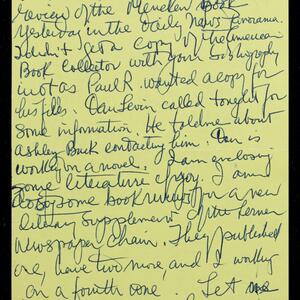 review of the Mencken Book
yesterday in the Daily News Panorama.
I didn't get a copy of the American
Book Collector with your bibliography
in it as Paul R. wanted a copy for
his files. Dan Levin called tonight for
some information. He told me about
Ashley Buck contacting him. Dan is
working on a novel. I am enclosing
some literature of joy. I am
doing some book reviews for a new
literary supplement of the Lerner
Newspaper chain. They published
one, have two more, and I working
on a fourth one. Let me